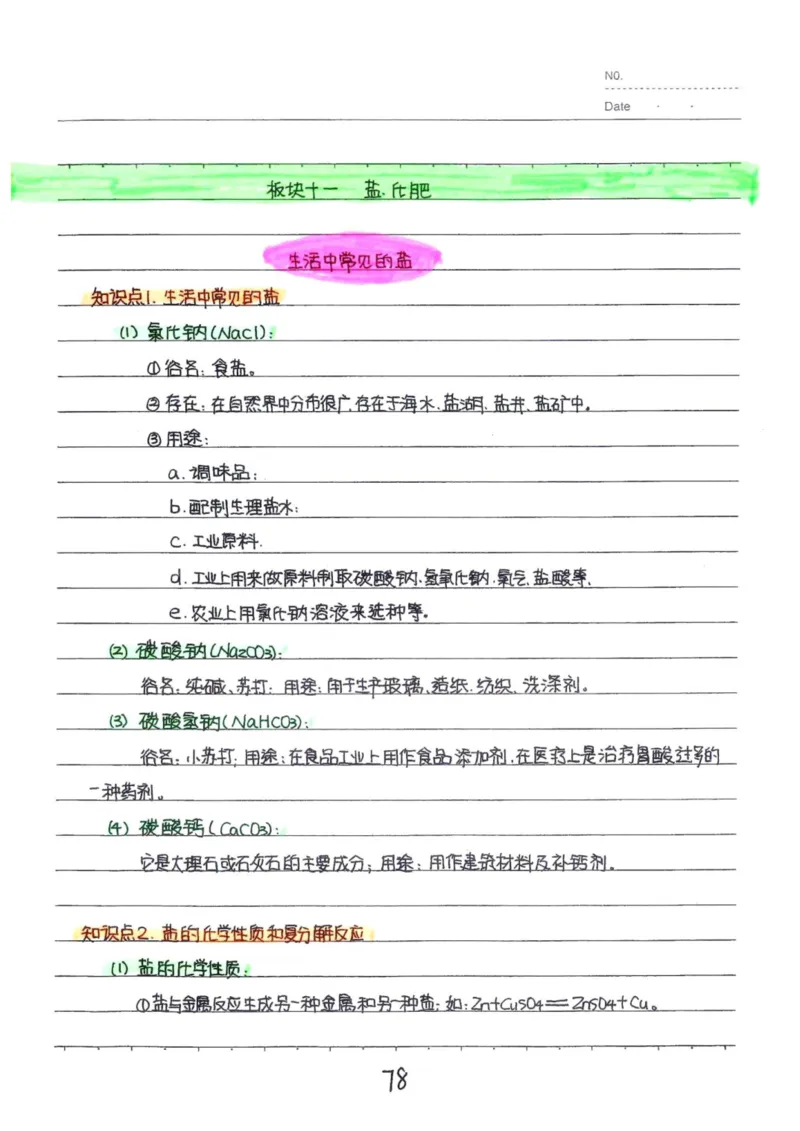 NO.
Date · ·
板块十一 盐、化肥
生活中常见的盐
知识点1. 生活中常见的盐
(1) 氯化钠(NaCl):
①俗名: 食盐。
②存在: 在自然界中分布很广,存在于海水、盐湖、盐井、盐矿中。
③用途:
a. 调味品;
b. 配制生理盐水;
c. 工业原料.
d. 工业上用来做原料制取碳酸钠、氢氧化钠、氯气、盐酸等、
e. 农业上用氯化钠溶液来选种等。
(2) 碳酸钠(Na2CO3):
俗名: 纯碱、苏打; 用途: 用于生产玻璃、造纸、纺织、洗涤剂。
(3) 碳酸氢钠(NaHCO3):
俗名: 小苏打; 用途: 在食品工业上用作食品添加剂, 在医疗上是治疗胃酸过多的
一种药剂。
(4) 碳酸钙(CaCO3):
它是大理石或石灰石的主要成分; 用途: 用作建筑材料及补钙剂。
知识点2. 盐的化学性质和复分解反应
(1) 盐的化学性质:
①盐与金属反应生成另一种金属和另一种盐; 如: Zn+CuSO4══ZnSO4+Cu。
78